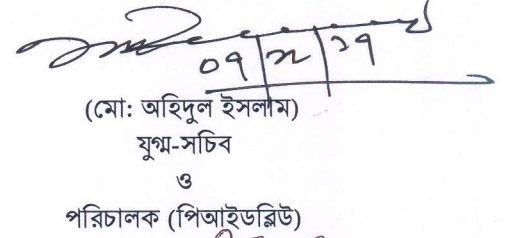 ০৭|২|১৭
(মো: অহিদুল ইসলাম)
যুগ্ম-সচিব
ও
পরিচালক (পিআইডব্লিউ)